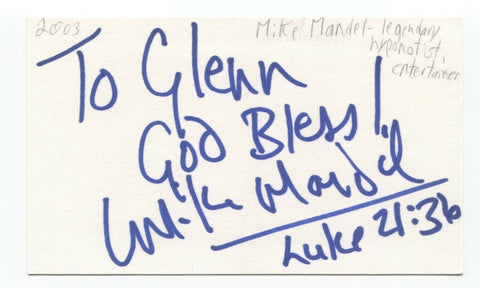 2003
Mike Mandel - legendary
hypnotist,
entertainer
To Glenn
God Bless!
Mike Mandel
Luke 21:36